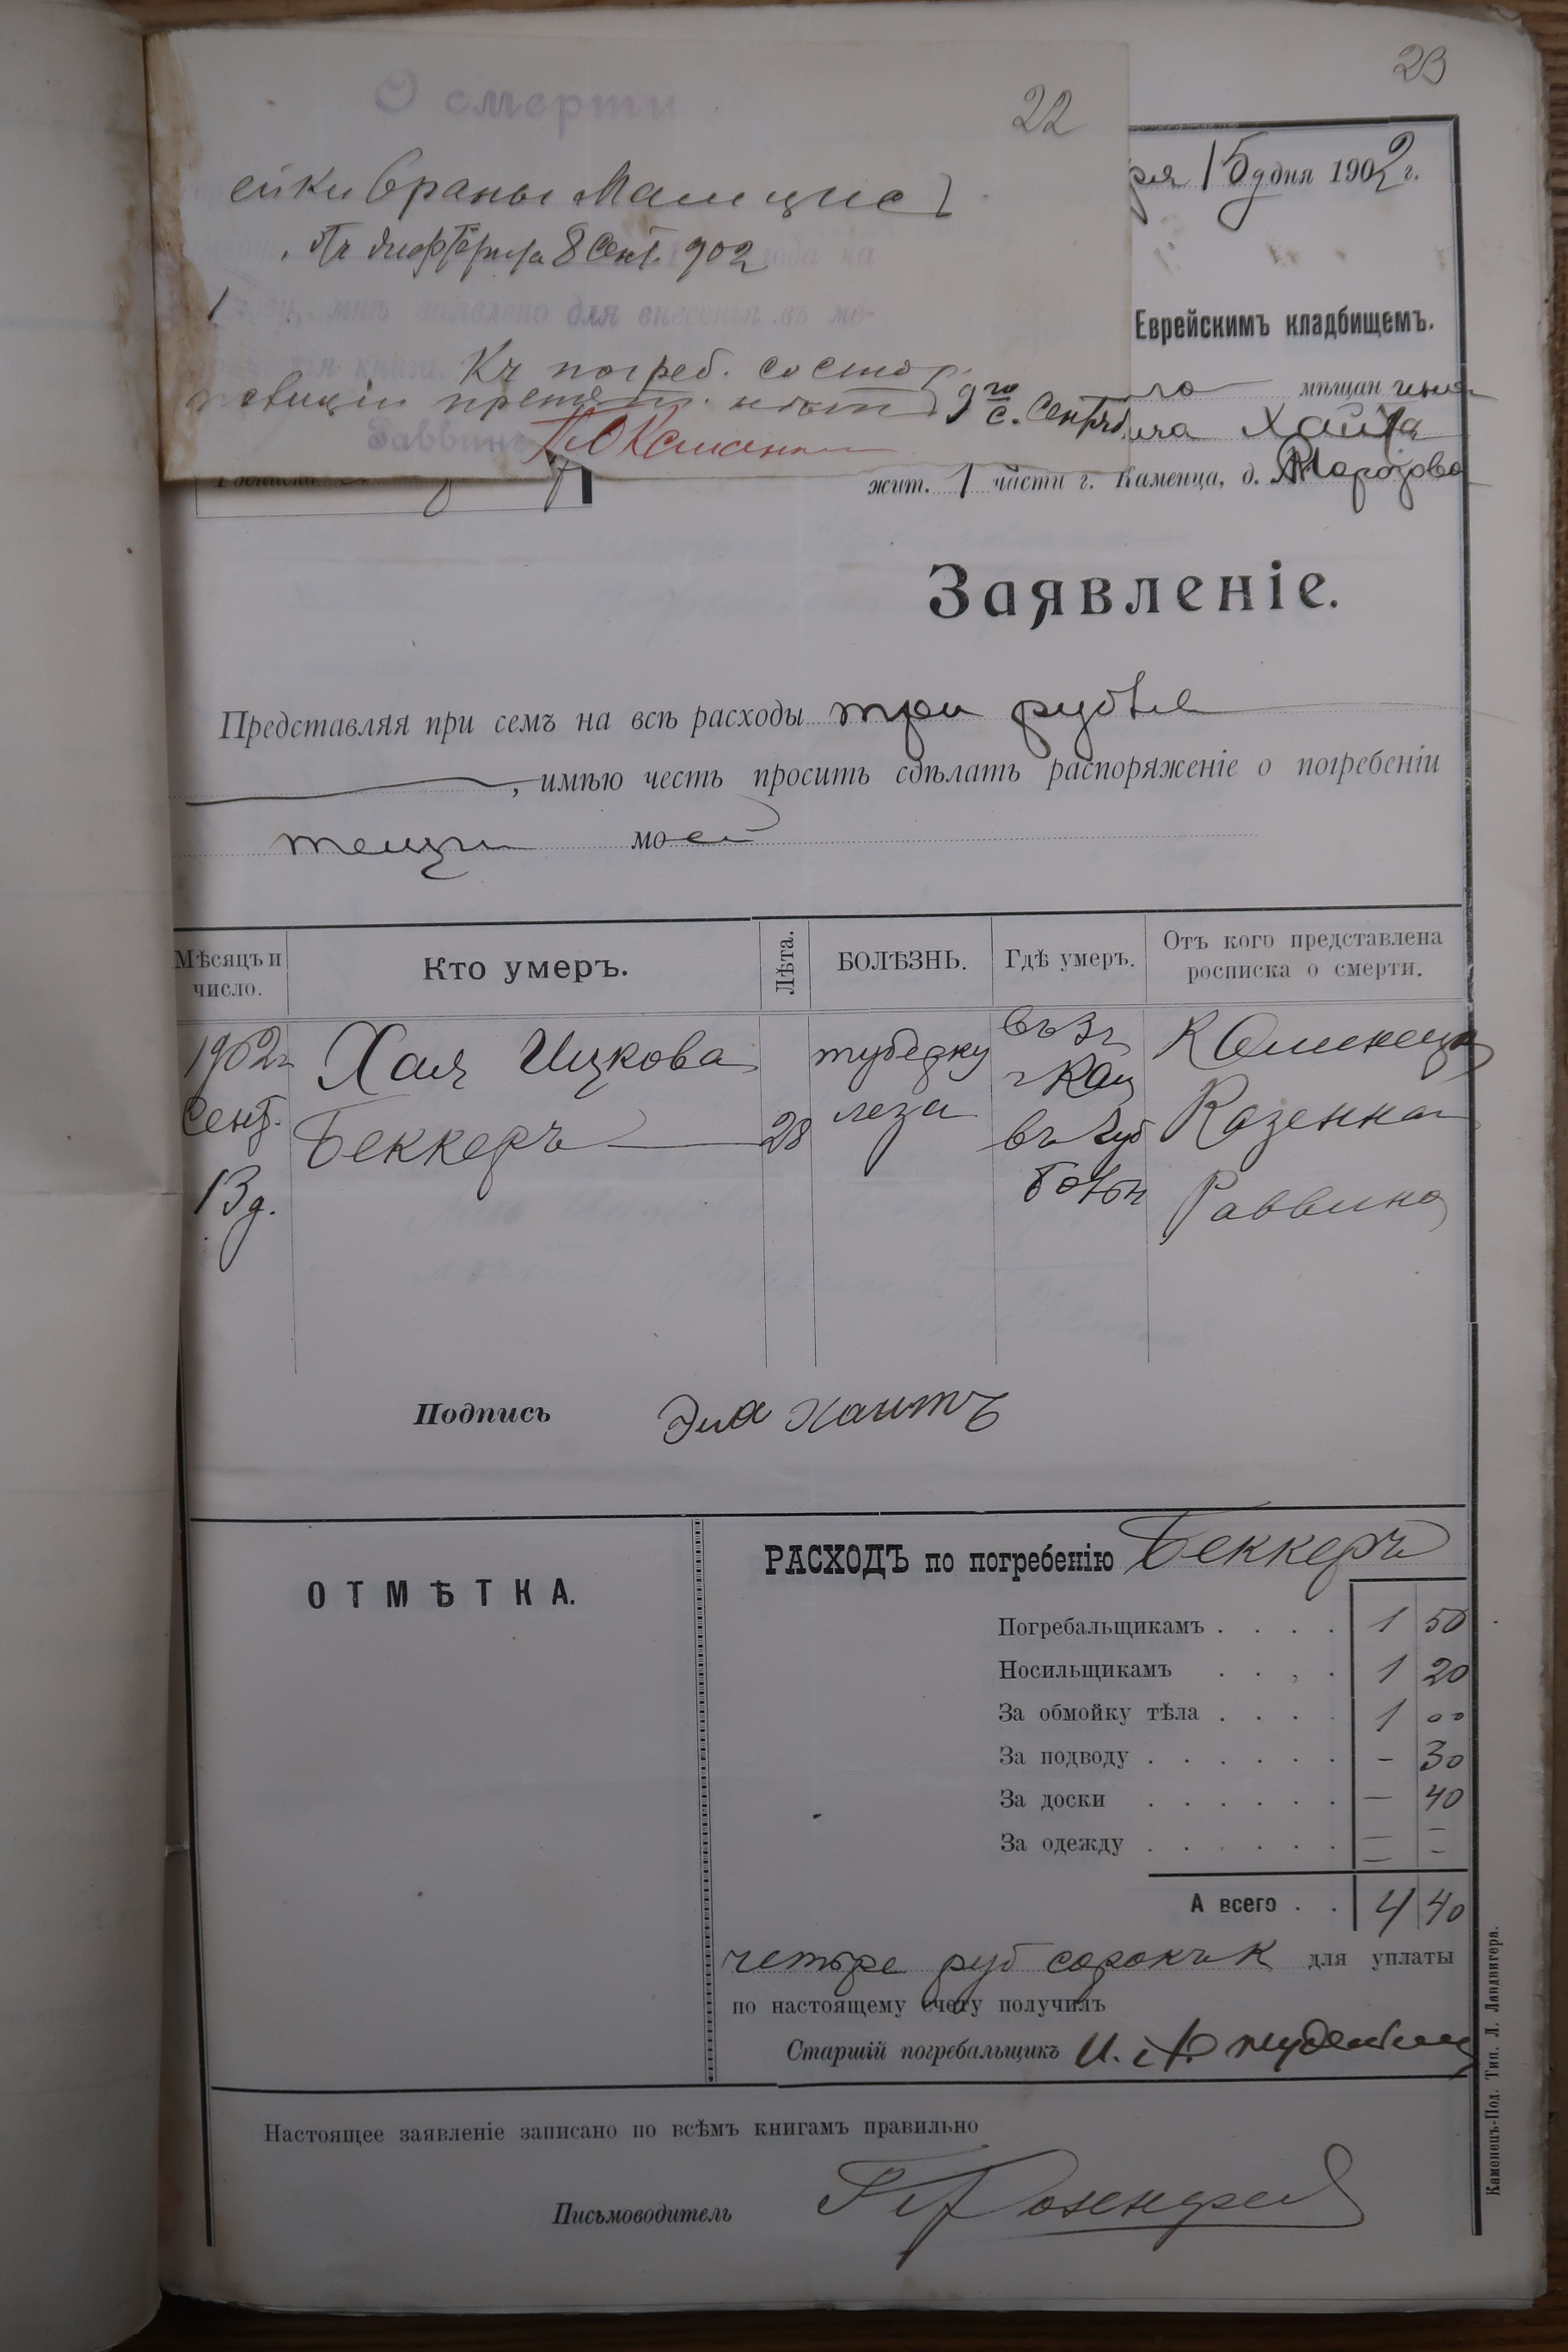 23
22
О смерти
ейки Враны Малицис
дифтерита 8 Сент. 902
1
года на
году, мнѣ заявлено для внесенія въ ме-
книги.
Къ погреб. состор.
9го с. Сентяб
Раввинъ
ря 15 дня 1902 г.
Еврейскимъ кладбищемъ.
го мѣщанина
ича Хаита
жит. 1 части г. Каменца, д. Морозова
Заявленіе.
Представляя при семъ на всѣ расходы три рубля
, имѣю честь просить сдѣлать распоряженіе о погребеніи
тещи моей
Мѣсяцъ и число.
Кто умеръ.
Лѣта.
БОЛѢЗНЬ.
Гдѣ умеръ.
Отъ кого представлена росписка о смерти.
1902 г
Сент.
13 д.
Хая Ицкова
Беккеръ
28
туберку
леза
въ
г Кам
въ Губ
больн
Каменецк
Казенна
Раввина
Подпись Эля Хаитъ
ОТМѢТКА.
РАСХОДЪ по погребенію Беккеръ
Погребальщикамъ . . . . 1 50
Носильщикамъ . . , . 1 20
За обмойку тѣла . . . . 1 00
За подводу . . . . . . - 30
За доски . . . . . . — 40
За одежду . . . . . . — —
А всего . . 4 40
четыре руб сорокъ к для уплаты
по настоящему счету получилъ
Старшій погребальщикъ И.
Настоящее заявленіе записано по всѣмъ книгамъ правильно
Письмоводитель Розенфел
Каменецъ-Под. Тип. Л. Ландвигера.